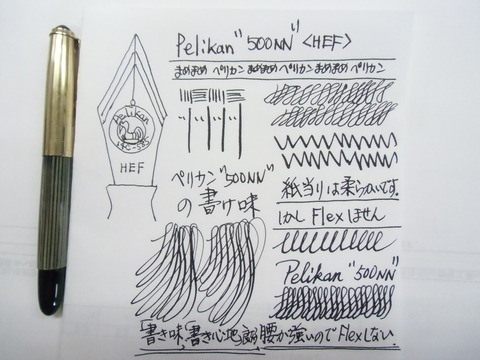 Pelikan "500NN" <HEF>
まめまめ ペリカン まめまめ ペリカン まめまめ ペリカン
Pelikan
14C-585
HEF
ペリカン"500NN"
の書け味
紙当りは柔らかいです。
しかし Flexしません
Pelikan "500NN"
書き味 書き心地 腰が強いのでFlexしない